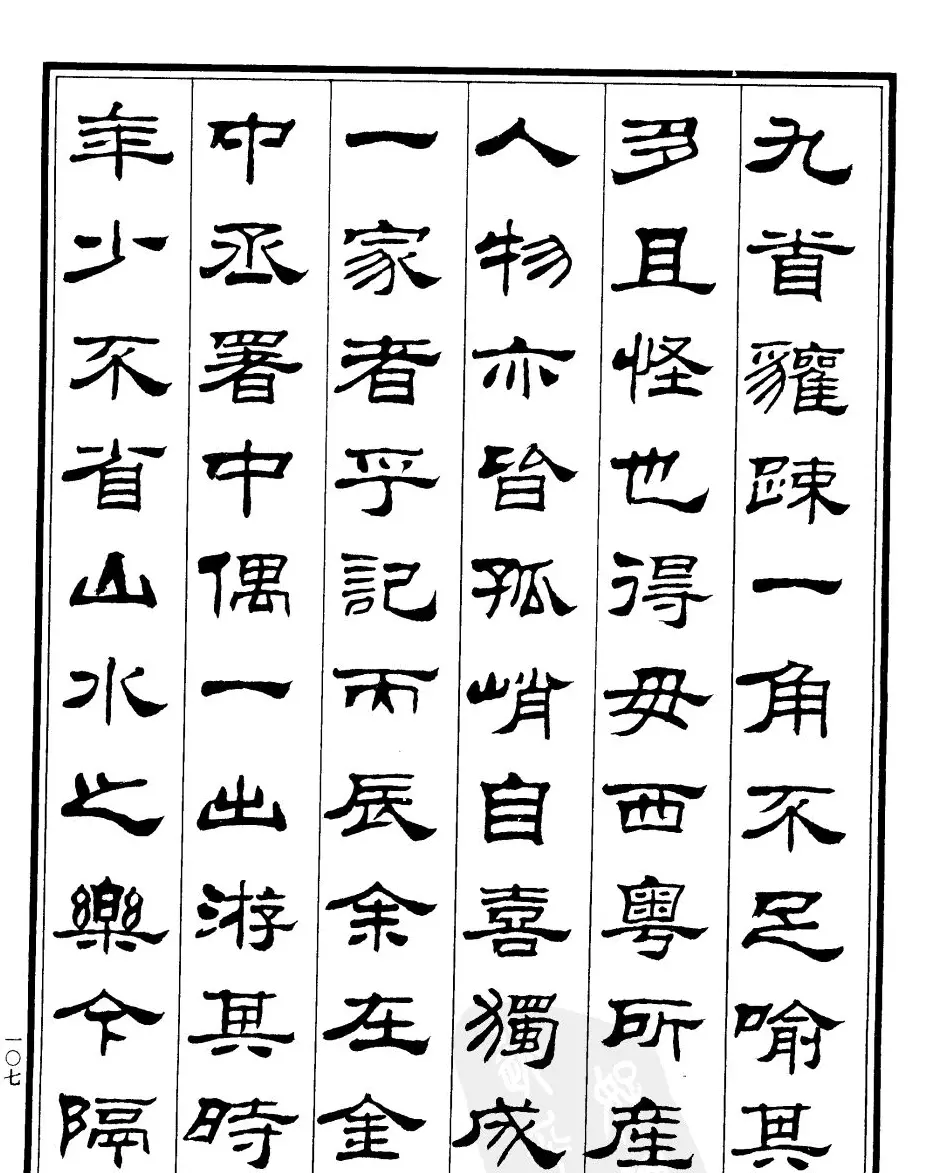 九首䝔疎一角不足喻其
多且怪也得毋西粵所産
人物亦皆孤峭自喜獨成
一家者乎記丙辰余在金
中丞署中偶一出游其時
年少不省山水之樂今隔
一〇七